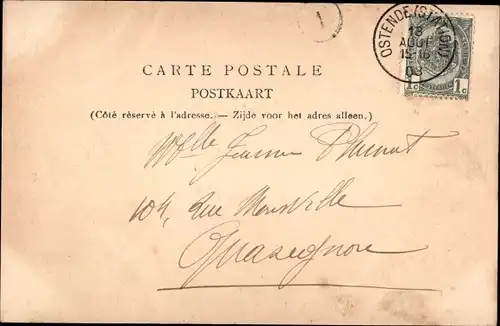 1
OSTENDE (STATION)
18
AOUT
15-16
03
1c 1c
CARTE POSTALE
POSTKAART
(Côté réservé à l'adresse. — Zijde voor het adres alleen.)
Mlle Jeanne
104, Rue
Quaregnon